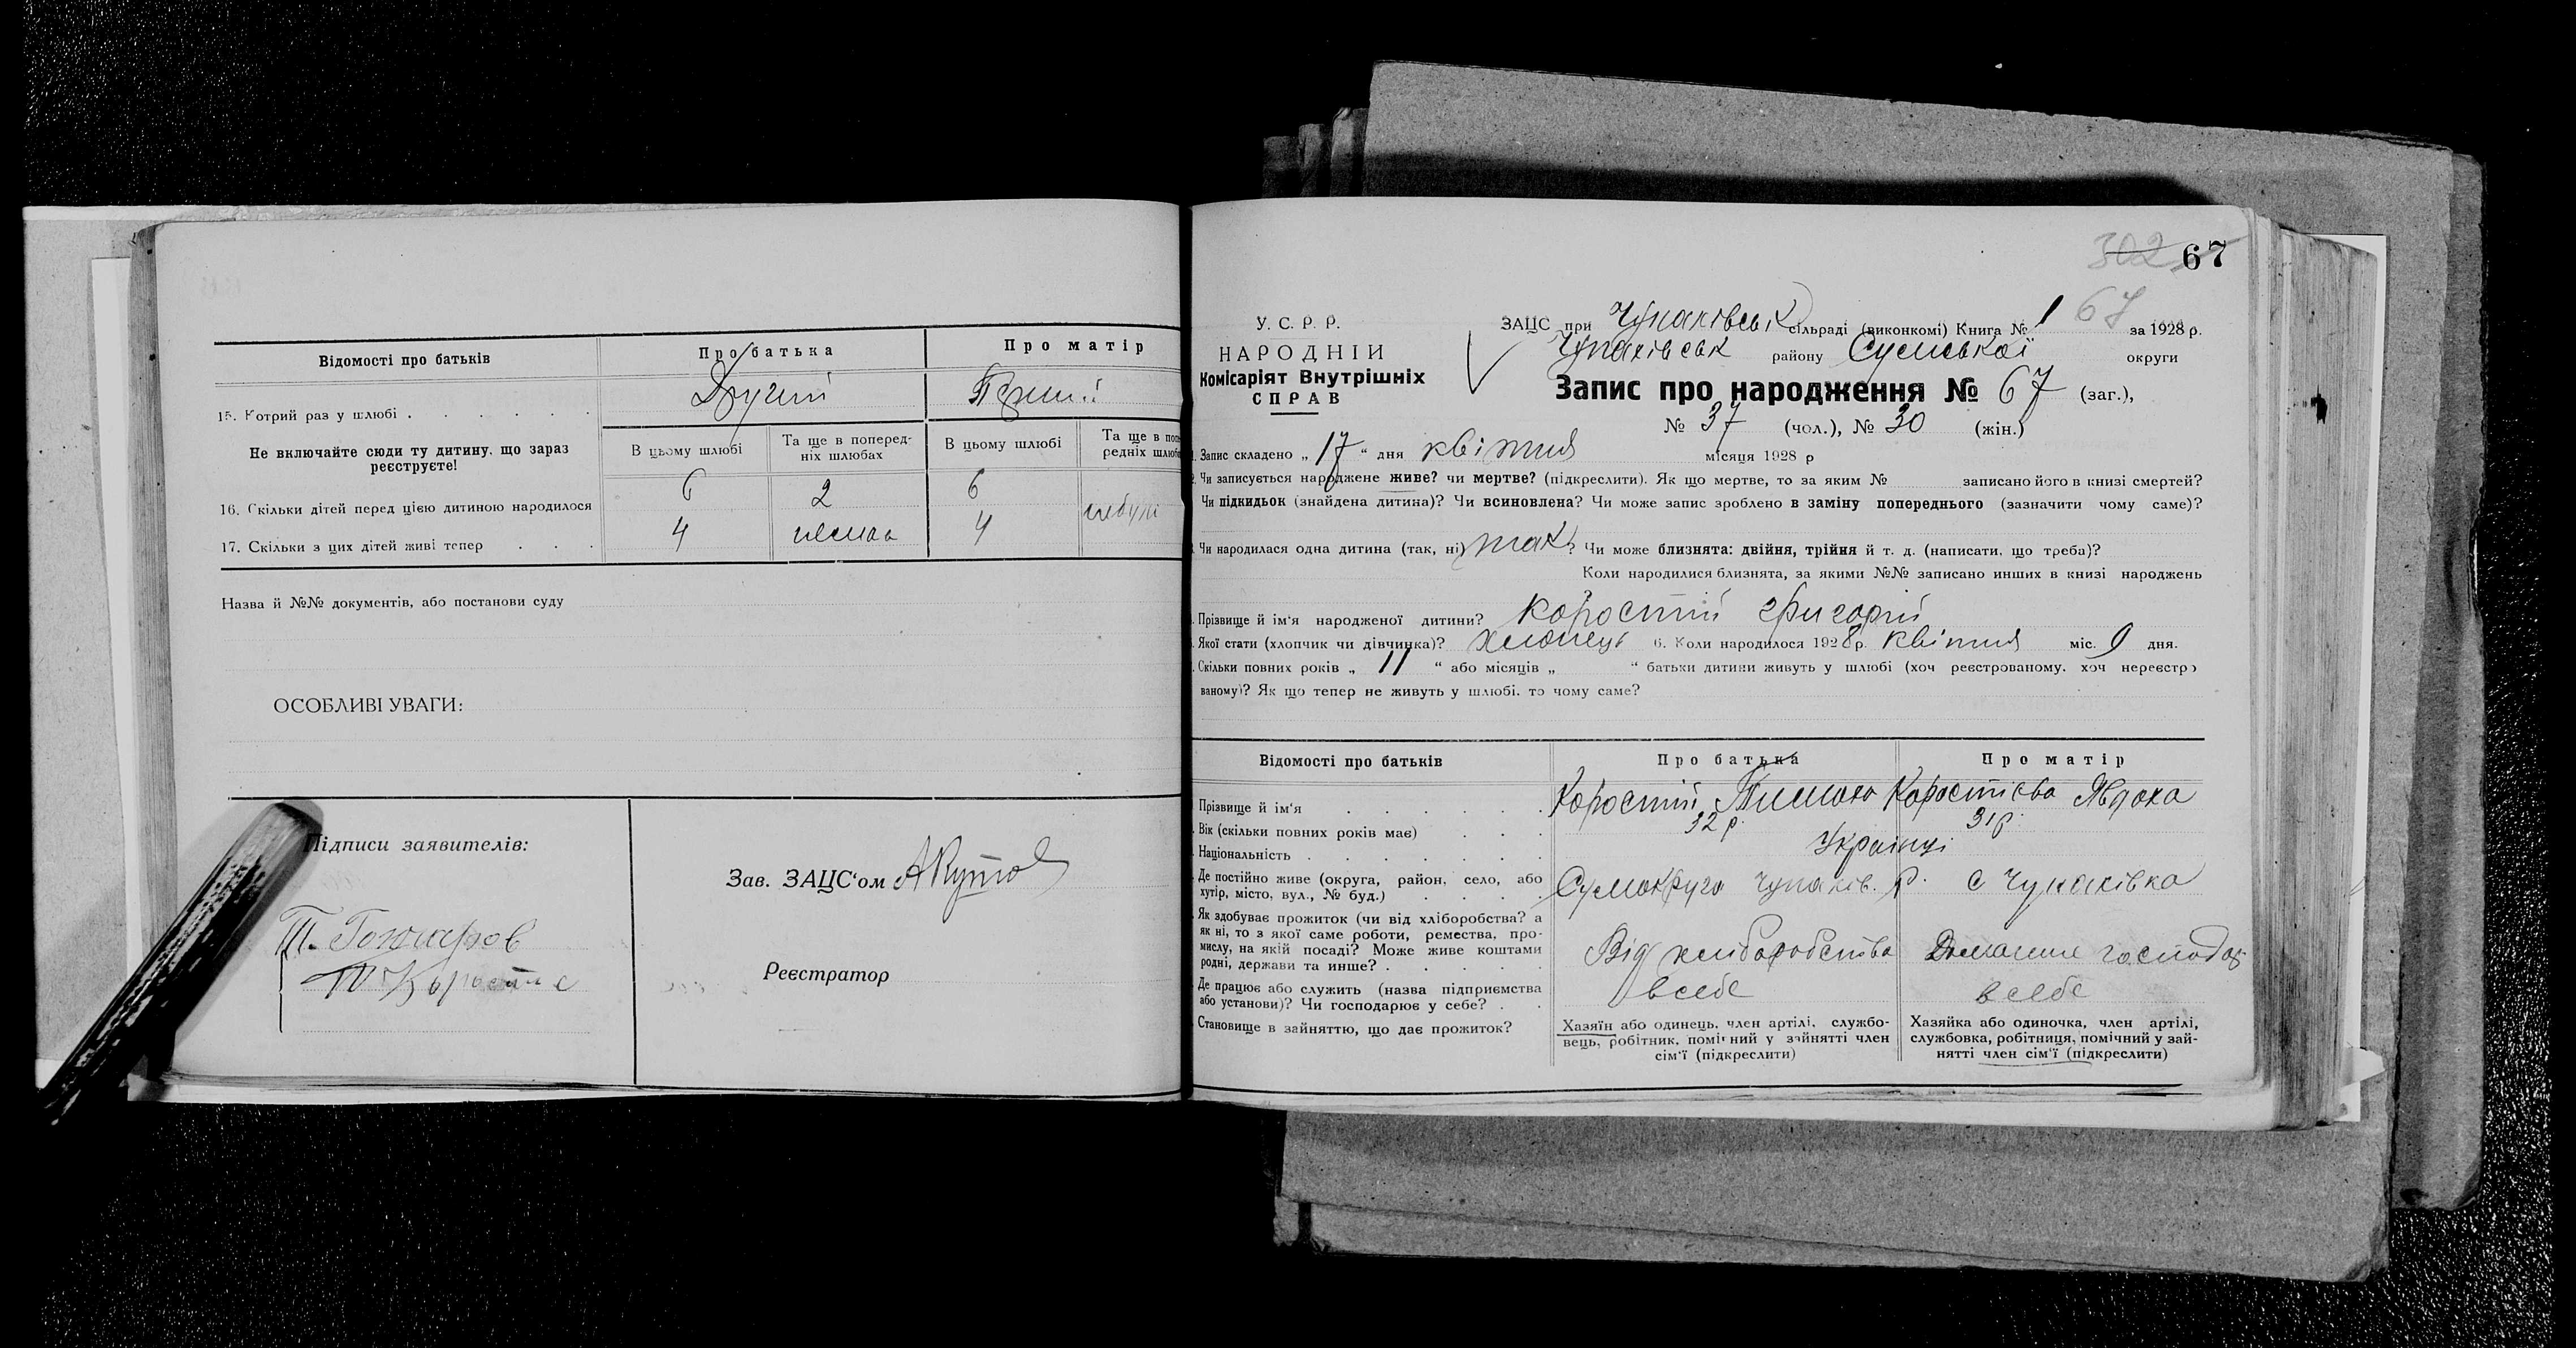 Відомості про батьків Про батька Про матір
15. Котрий раз у шлюбі Другий Перший
Не включайте сюди ту дитину, що зараз реєструєте!
В цьому шлюбі Та ще в попередніх шлюбах В цьому шлюбі Та ще в попередніх шлюбах
16. Скільки дітей перед цією дитиною народилося 6 2 6 небуло
17. Скільки з цих дітей живі тепер 4 немає 4
Назва й №№ документів, або постанови суду
ОСОБЛИВІ УВАГИ:
Підписи заявителів:
Т. Гончаров
Зав. ЗАЦС'ом
Реєстратор
302 67
У. С. Р. Р.
НАРОДНІЙ
Комісаріят Внутрішніх
СПРАВ
ЗАЦС при Чупахівськ сільраді (виконкомі) Книга № 1 67 за 1928 р.
Чупахівськ району Сумської округи
Запис про народження № 67 (заг.),
№ 37 (чол.), № 30 (жін.)
Запис складено „ 17 “ дня квітня місяця 1928 р
Чи записується народжене живе? чи мертве? (підкреслити). Як що мертве, то за яким № записано його в книзі смертей?
Чи підкидьок (знайдена дитина)? Чи всиновлена? Чи може запис зроблено в заміну попереднього (зазначити чому саме)?
Чи народилася одна дитина (так, ні) так ? Чи може близнята: двійня, трійня й т. д. (написати, що треба)?
Коли народилися близнята, за якими №№ записано инших в книзі народжень
Прізвище й ім'я народженої дитини? Коростій Григорій
Якої стати (хлопчик чи дівчинка)? хлопець 6. Коли народилося 1928 р. квітня міс. 9 дня.
Скільки повних років „ 11 “ або місяців „ “ батьки дитини живуть у шлюбі (хоч реєстрованому, хоч нереєстро
ваному)? Як що тепер не живуть у шлюбі, то чому саме?
Відомості про батьків Про батька Про матір
Прізвище й ім'я Коростій Тимохо Коростієва Явдоха
Вік (скільки повних років має) 32 р. 31 р.
Національність Українці
Де постійно живе (округа, район, село, або
хутір, місто, вул., № буд.) Сумокруга Чупахів. р. с Чупахівка
Як здобуває прожиток (чи від хліборобства? а
як ні, то з якої саме роботи, ремества, про-
мислу, на якій посаді? Може живе коштами
родні, держави та инше? Від хліборобства Домашне господар
Де працює або служить (назва підприємства
або установи)? Чи господарює у себе? в себе в себе
Становище в зайняттю, що дає прожиток?
Хазяїн або одинець, член артілі, службо-
вець, робітник, помічний у зайнятті член
сім'ї (підкреслити)
Хазяйка або одиночка, член артілі,
службовка, робітниця, помічний у зай-
нятті член сім'ї (підкреслити)